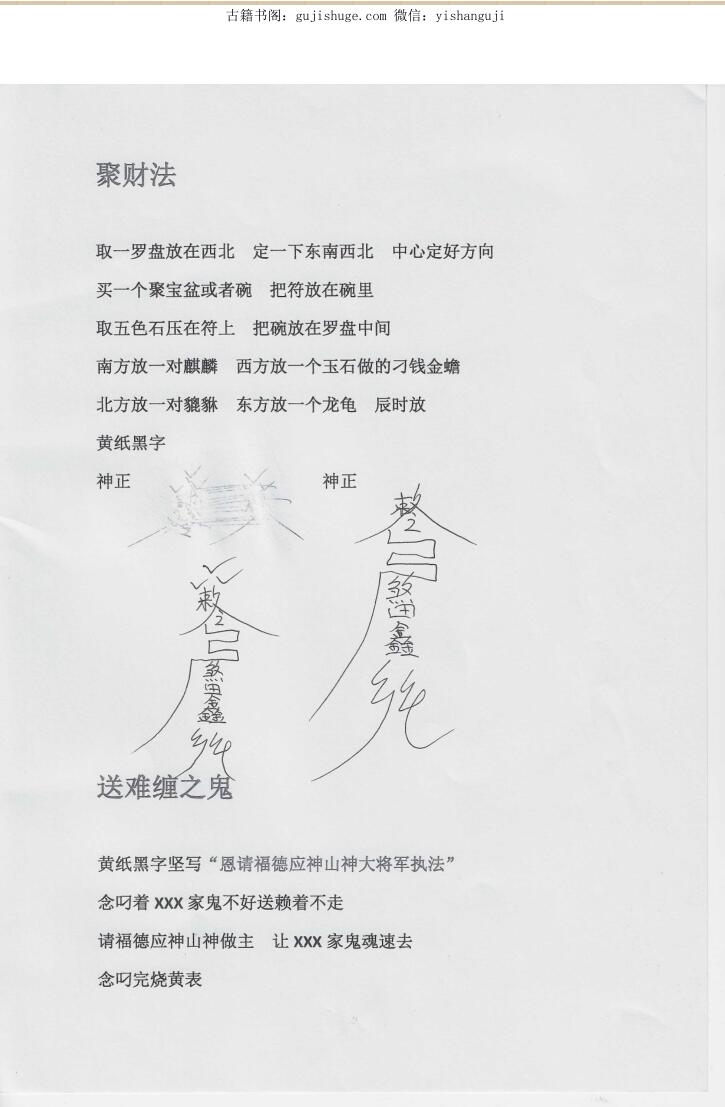 古籍书阁：gujishuge.com 微信：yishanguji
聚财法
取一罗盘放在西北　定一下东南西北　中心定好方向
买一个聚宝盆或者碗　把符放在碗里
取五色石压在符上　把碗放在罗盘中间
南方放一对麒麟　西方放一个玉石做的刁钱金蟾
北方放一对貔貅　东方放一个龙龟　辰时放
黄纸黑字
神正　神正
敕
敕
煞
田
鑫
煞
田
鑫
送难缠之鬼
黄纸黑字坚写“恩请福德应神山神大将军执法”
念叼着 XXX 家鬼不好送赖着不走
请福德应神山神做主　让 XXX 家鬼魂速去
念叼完烧黄表